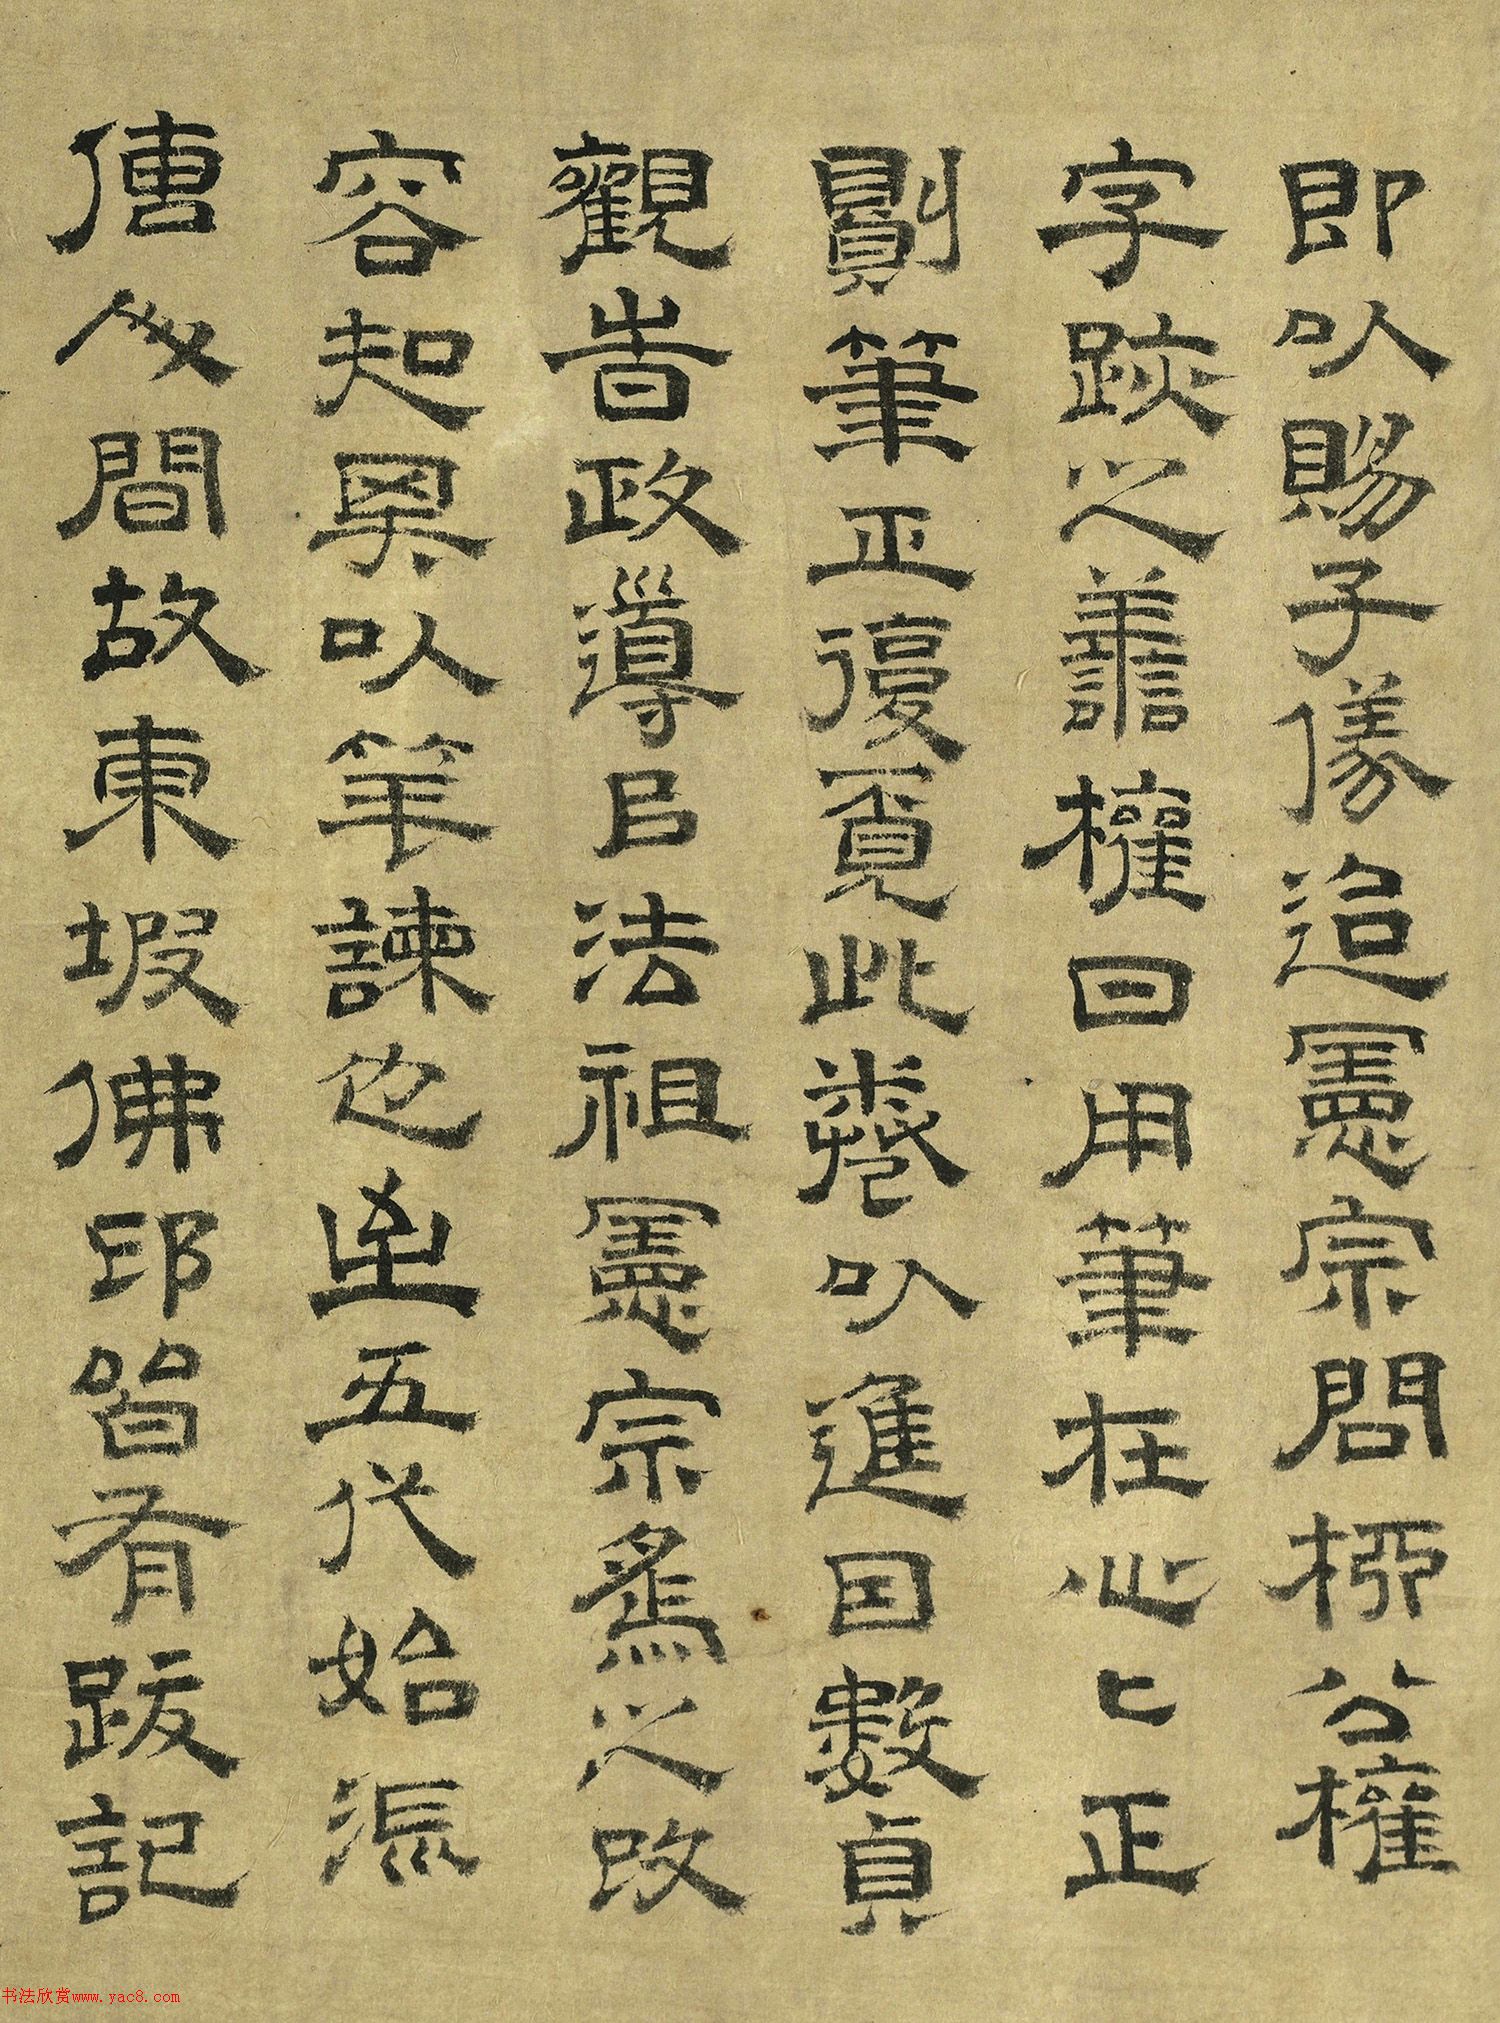 即以賜子儀迨憲宗問柳公權
字跡之譱權回用筆在心匕正
則筆正復覓此卷以進国數貞
觀旹政導民法祖憲宗為之改
容起異以筆諫也迄五代始流
傳人間故東坡佛印皆有跋記
书法欣赏www.yac8.com